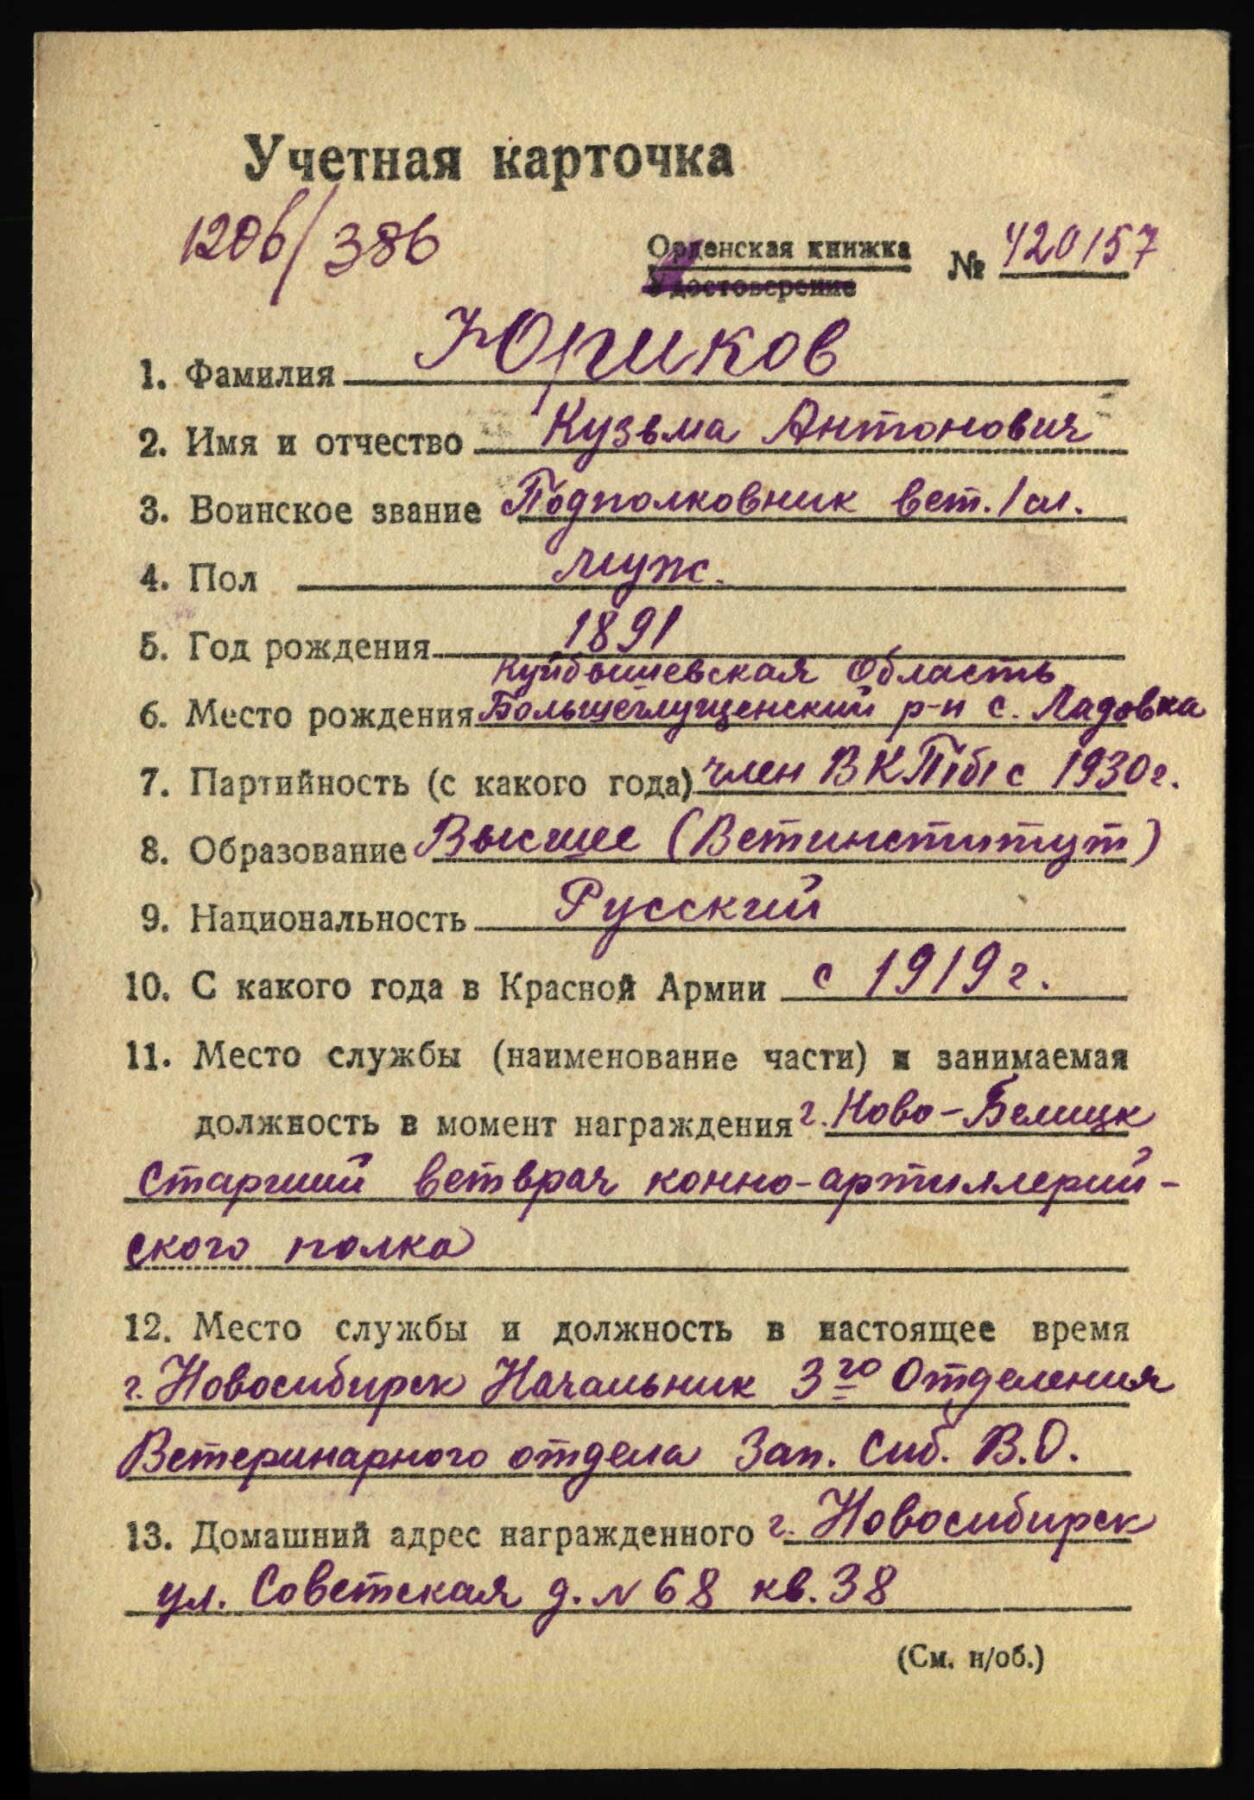 Учетная карточка
1206/386
Орденская книжка № 420157
Удостоверение
1. Фамилия Юриков
2. Имя и отчество Кузьма Антонович
3. Воинское звание Подполковник вет./сл.
4. Пол муж.
5. Год рождения 1891
Куйбышевская Область
6. Место рождения Большеглущенский р-н с. Ладовка
7. Партийность (с какого года) член ВКП(б) с 1930г.
8. Образование Высшее (Ветинститут)
9. Национальность Русский
10. С какого года в Красной Армии с 1919г.
11. Место службы (наименование части) и занимаемая
должность в момент награждения г. Ново-Белицк
Старший ветврач конно-артиллерий-
ского полка
12. Место службы и должность в настоящее время
г. Новосибирск Начальник 3го Отделения
Ветеринарного отдела Зап. Сиб. В.О.
13. Домашний адрес награжденного г. Новосибирск
ул. Советская д. № 68 кв. 38
(См. н/об.)